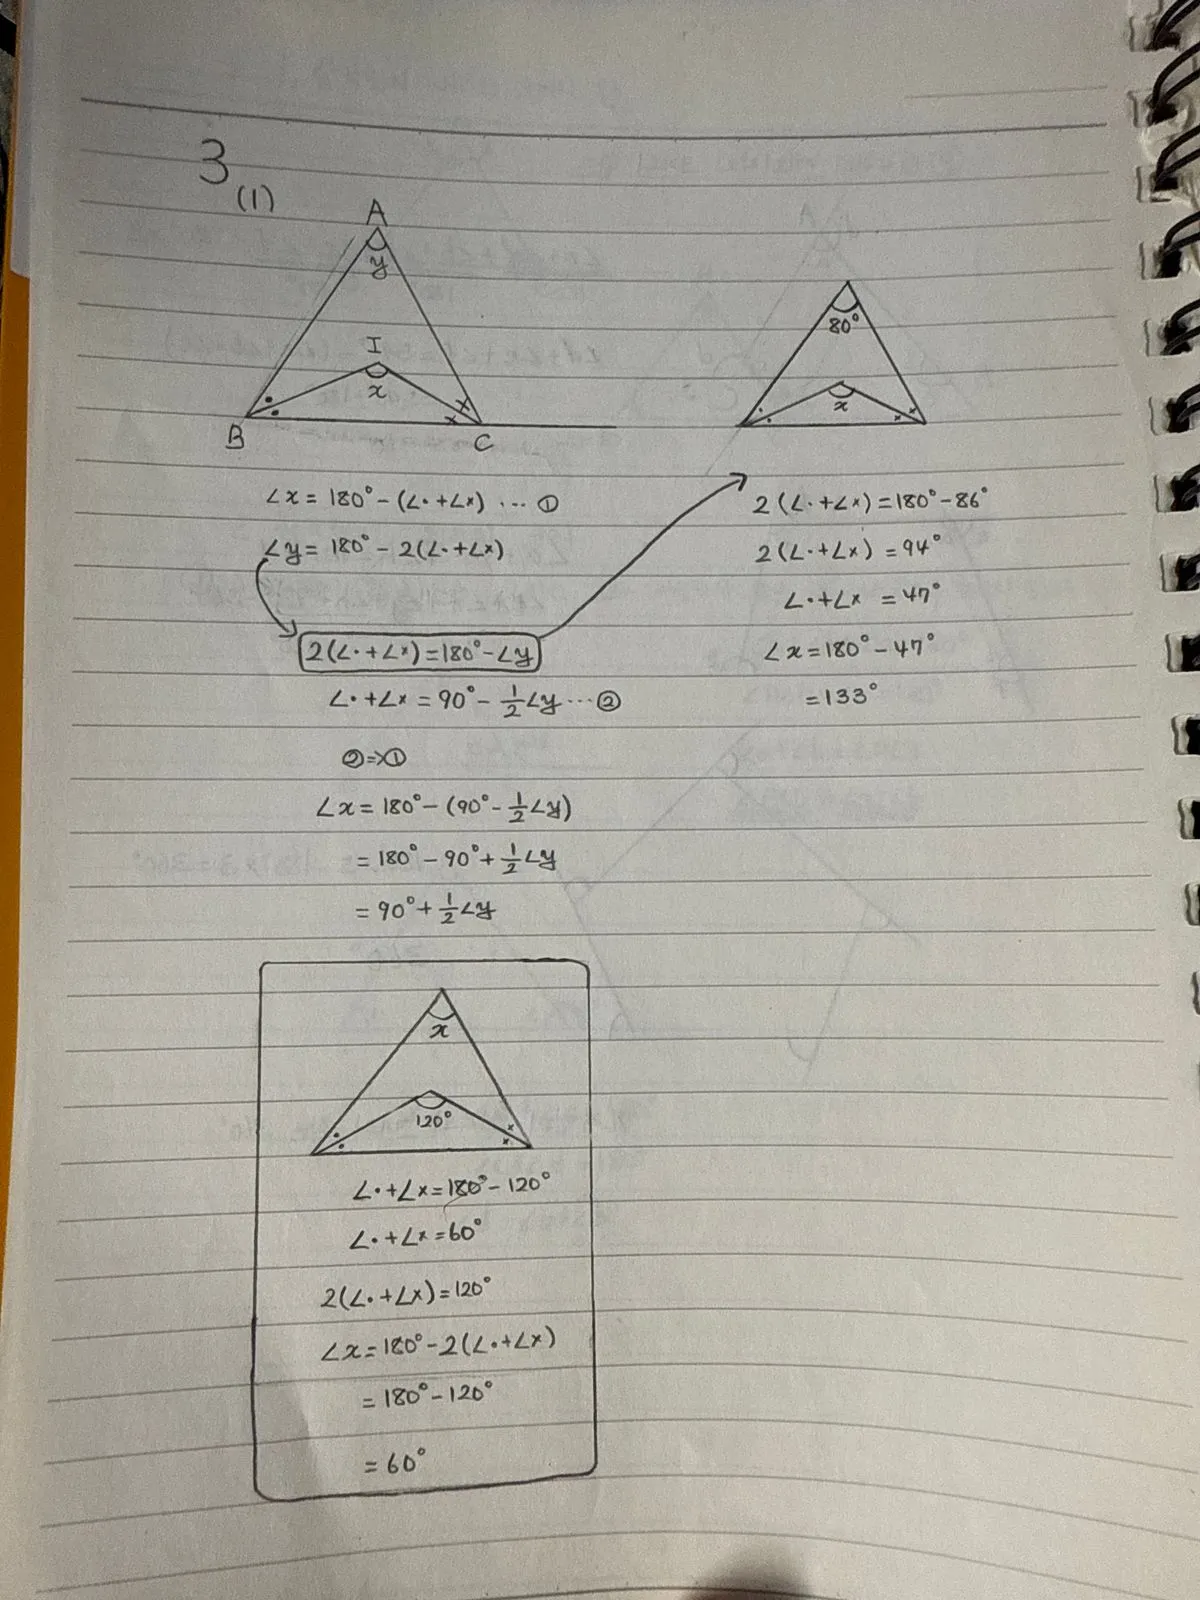 3
(1)
A
y
I
x
B
C
∠x = 180° - (∠• + ∠×) … ①
∠y = 180° - 2(∠• + ∠×)
2(∠• + ∠×) = 180° - ∠y
∠• + ∠× = 90° - 1/2∠y … ②
② => ①
∠x = 180° - (90° - 1/2∠y)
= 180° - 90° + 1/2∠y
= 90° + 1/2∠y
80°
x
2(∠• + ∠×) = 180° - 86°
2(∠• + ∠×) = 94°
∠• + ∠× = 47°
∠x = 180° - 47°
= 133°
x
120°
∠• + ∠× = 180° - 120°
∠• + ∠× = 60°
2(∠• + ∠×) = 120°
∠x = 180° - 2(∠• + ∠×)
= 180° - 120°
= 60°